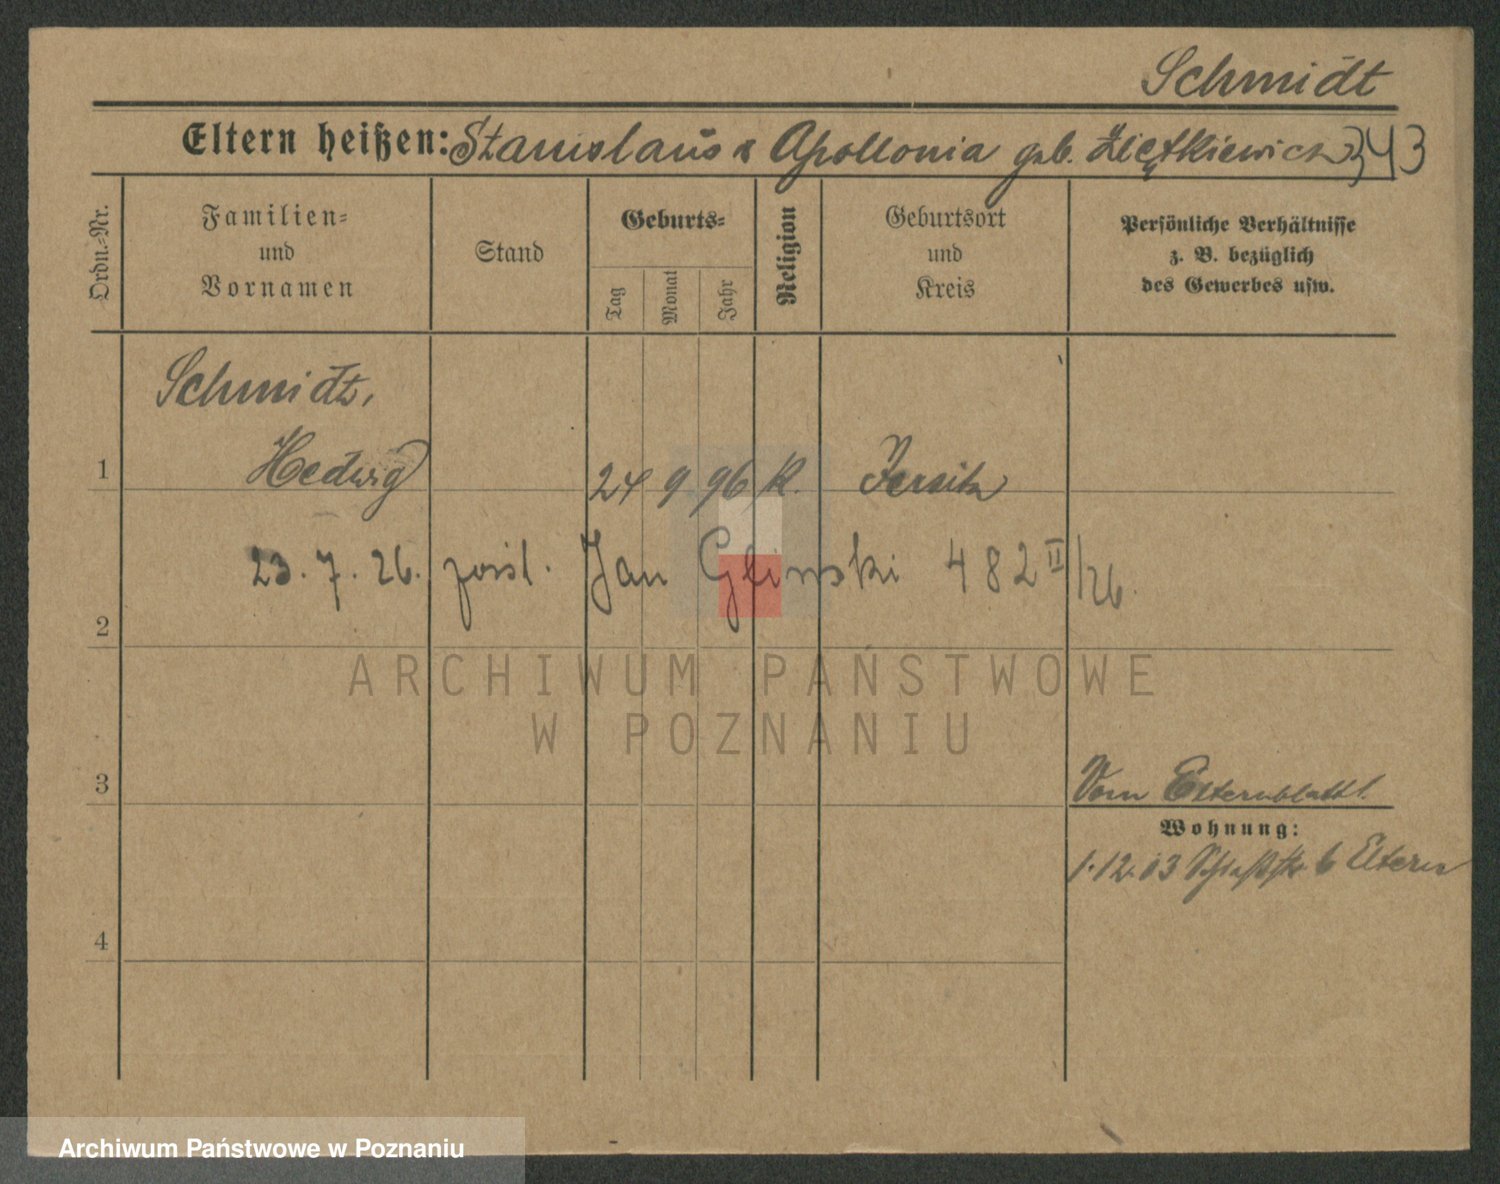 Schmidt
Eltern heißen: Stanislaus & Apollonia geb. 343
Ordn.-Nr.
Familien-
und
Vornamen
Stand
Geburts-
Tag
Monat
Jahr
Religion
Geburtsort
und
Kreis
Persönliche Verhältnisse
z. B. bezüglich
des Gewerbes usw.
Schmidt,
1 Hedwig 24 9 96 K. Jersitz
23. 7. 26. Jan Glinski 482 II/26.
2
ARCHIWUM PAŃSTWOWE
W POZNANIU
3 Vom Elternblatt
Wohnung:
1.12.13 6 Eltern
4
Archiwum Państwowe w Poznaniu